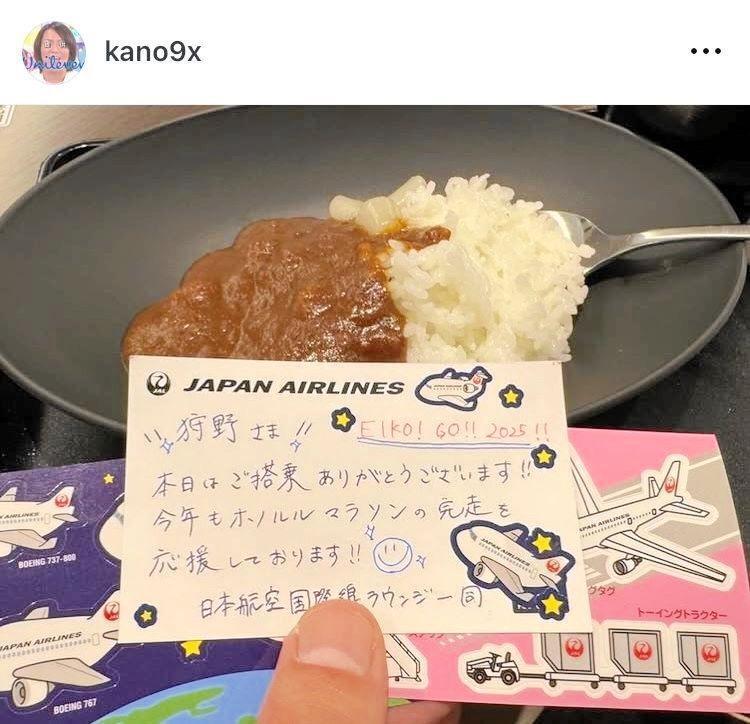 kano9x
Unilever
JAL
JAPAN AIRLINES
狩野さま!!
EIKO! GO!! 2025!!
本日はご搭乗ありがとうございます!!
今年もホノルルマラソンの完走を
応援しております!!
日本航空国際線ラウンジ一同
JAPAN AIRLINES
BOEING 737-800
JAPAN AIRLINES
BOEING 767
JAPAN AIRLINES
JAPAN AIRLINES
グタグ
トーイングトラクター